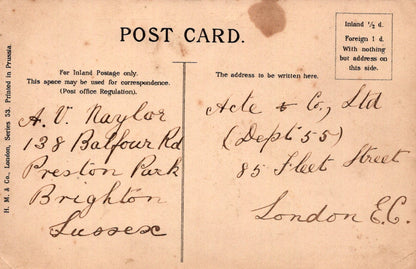 POST CARD.
Inland ½ d.
Foreign 1 d.
With nothing
but address on
this side.
For Inland Postage only.
This space may be used for correspondence.
(Post office Regulation).
The address to be written here.
H. M. & Co., London, Series 53, Printed in Prussia.
A. V. Naylor
138 Balfour Rd
Preston Park
Brighton
Sussex
Acte & Co., Ltd
(Dept 55)
85 Fleet Street
London E.C.